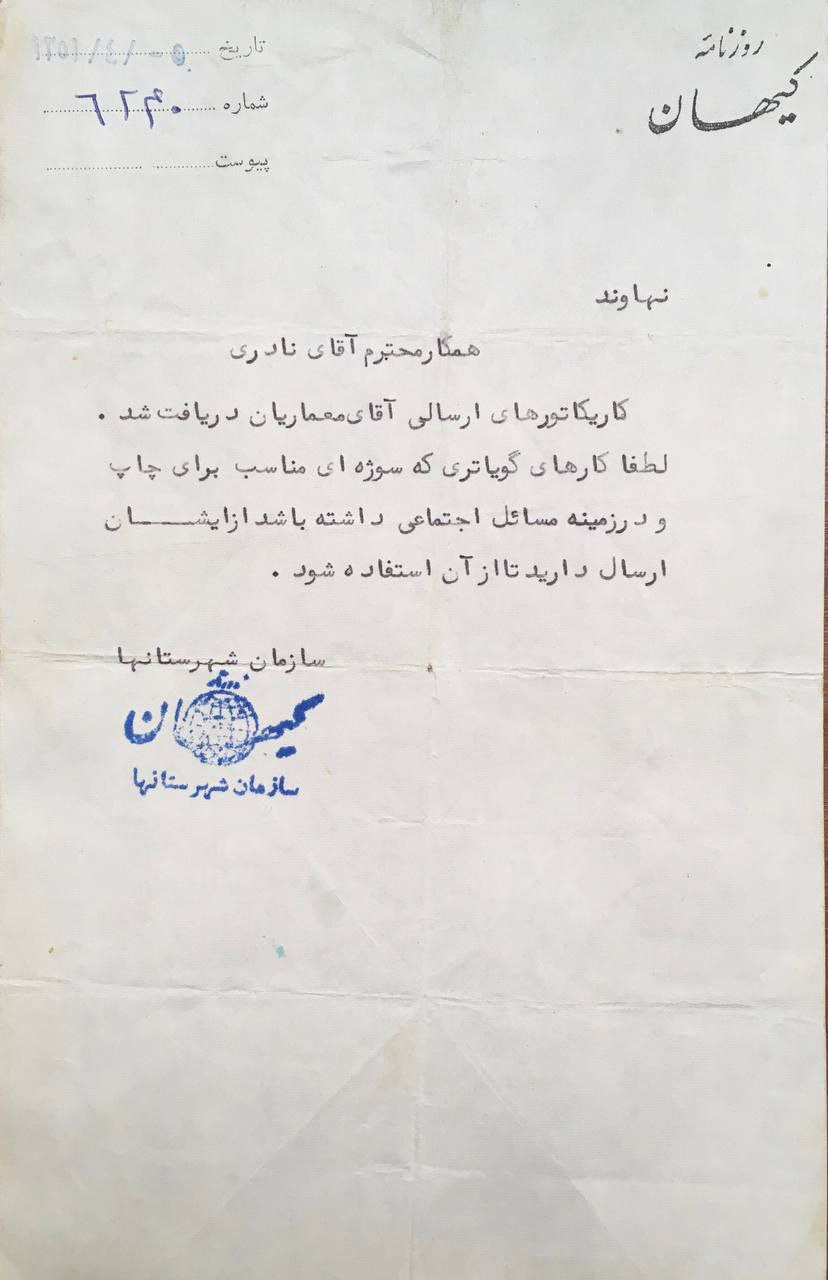 روزنامه
کیهان
تاریخ
شماره ۶۲۴۰
پیوست
نهاوند
همکار محترم آقای نادری
کاریکاتورهای ارسالی آقای معماریان دریافت شد .
لطفا کارهای گویاتری که سوژه ای مناسب برای چاپ
و در زمینه مسائل اجتماعی داشته باشد از ایشـــان
ارسال دارید تا از آن استفاده شود .
سازمان شهرستانها
روزنامه
کیهان
سازمان شهرستانها